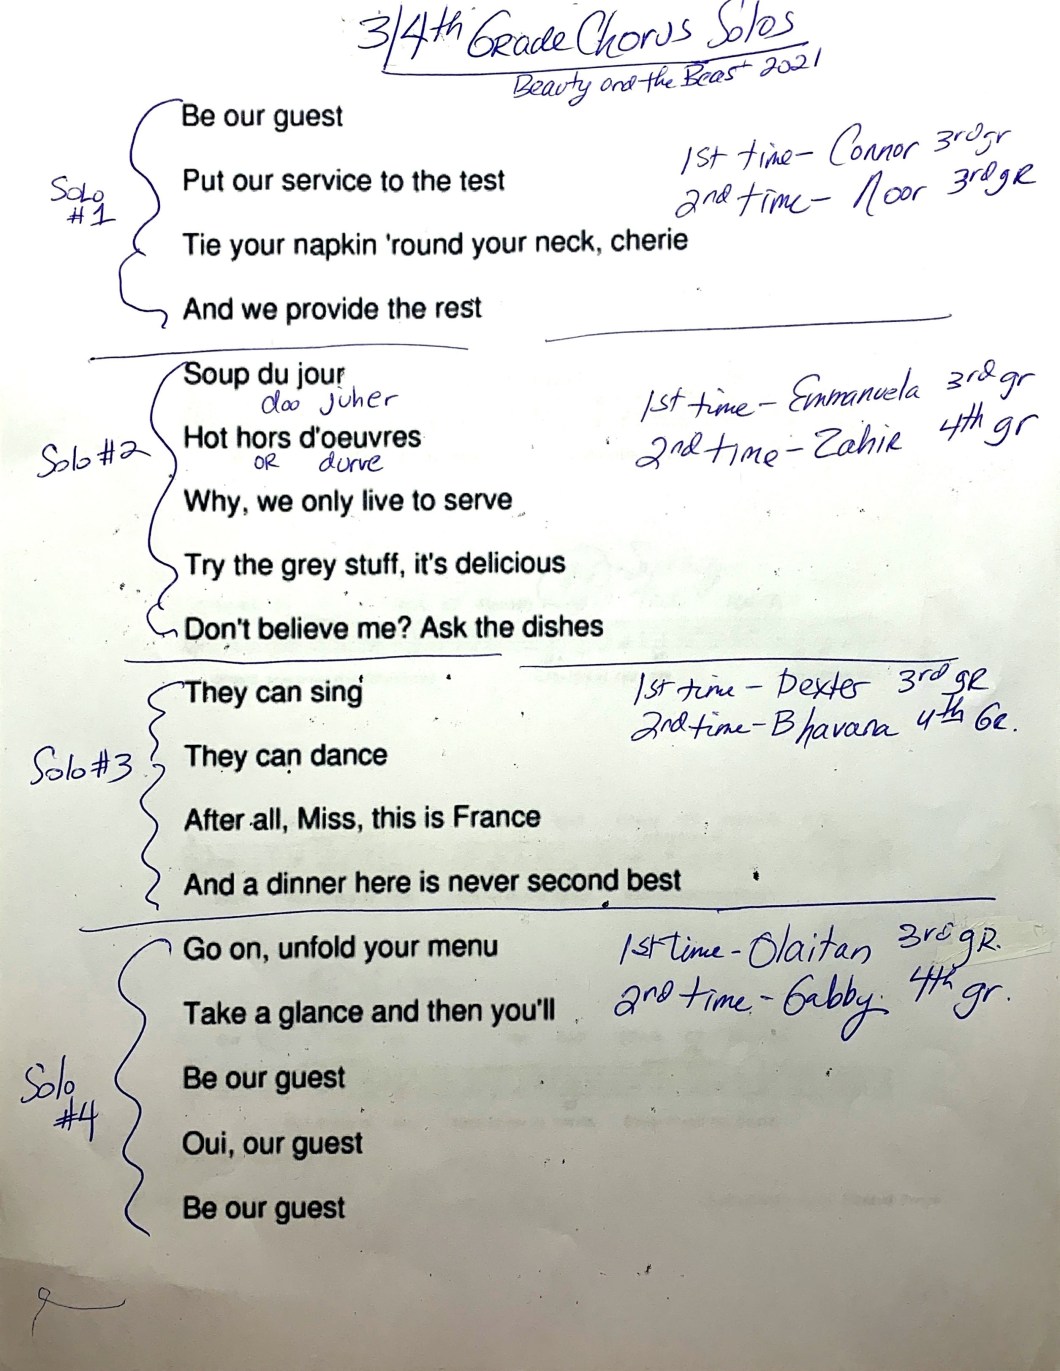 3/4th Grade Chorus Solos
Beauty and the Beast 2021
Be our guest
1st time - Connor 3rd gr
Put our service to the test
2nd time - Noor 3rd gR
Solo #1
Tie your napkin 'round your neck, cherie
And we provide the rest
Soup du jour
doo juher
1st time - Emmanuela 3rd gr
Hot hors d'oeuvres
OR durve
2nd time - Zahir 4th gr
Solo #2
Why, we only live to serve
Try the grey stuff, it's delicious
Don't believe me? Ask the dishes
They can sing
1st time - Dexter 3rd gR
2nd time - Bhavana 4th GR.
Solo #3
They can dance
After all, Miss, this is France
And a dinner here is never second best
Go on, unfold your menu
1st time - Olaitan 3rd gR.
Take a glance and then you'll
2nd time - Gabby 4th gr.
Solo #4
Be our guest
Oui, our guest
Be our guest